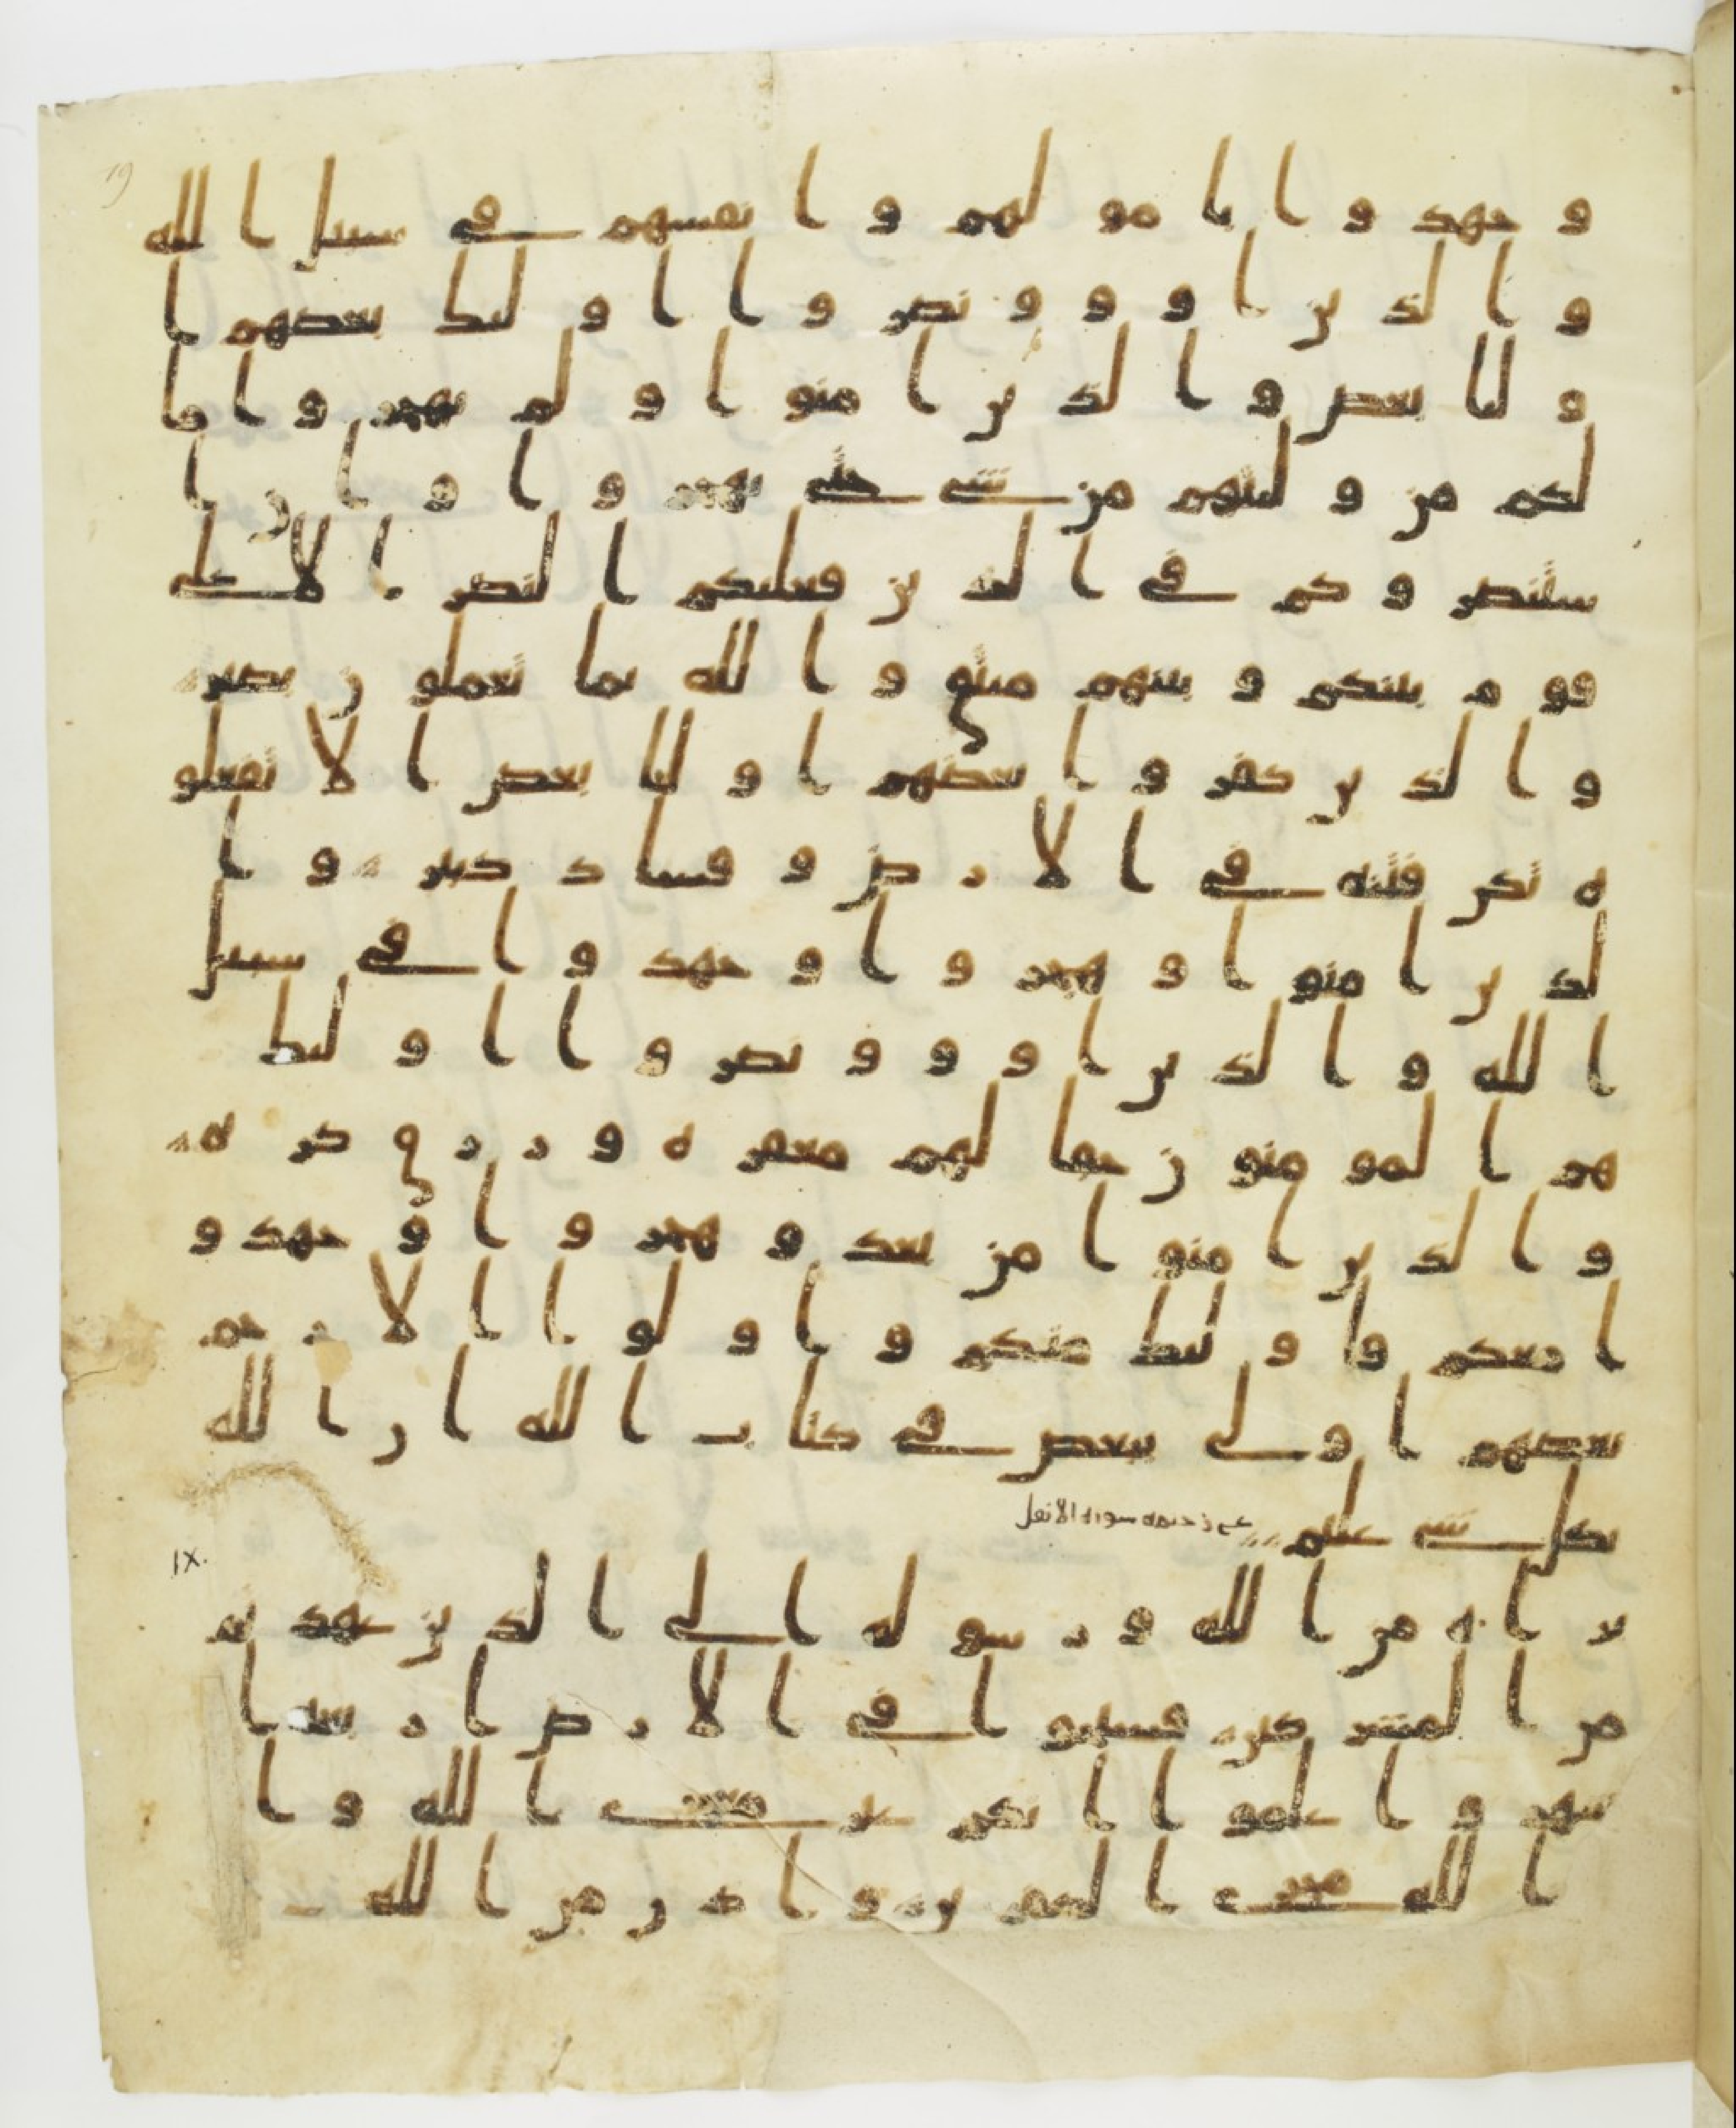 وجهدوا بامولهم وانفسهم في سبيل الله
والذين اووا ونصروا اوليك بعضهم ا
وليا بعض والذين امنوا ولم يهجروا ما
لكم من وليتهم من شي حتي يهجروا وان ا
ستنصروكم في الدين فعليكم النصر الا علي
قوم بينكم وبينهم ميثق والله بما تعملون بصير
والذين كفروا بعضهم اوليا بعض الا تفعلو
ه تكن فتنه في الارض وفساد كبير وا
لذين امنوا وهجروا وجهدوا في سبيل
الله والذين اووا ونصروا اوليك
هم المومنون حقا لهم مغفره ورزق كريم
والذين امنوا من بعد وهجروا وجهدو
ا معكم فاوليك منكم واولوا الارحم
بعضهم اولي ببعض في كتاب الله ان الله
بكل شي عليم ختمه سوره الانفل
IX.
براه من الله ورسوله الي الذين عهدتم
من المشركين فسيحوا في الارض اربعه ا
شهر واعلموا انكم غير معجزي الله وا
الله مخزي الكفرين واذن من الله